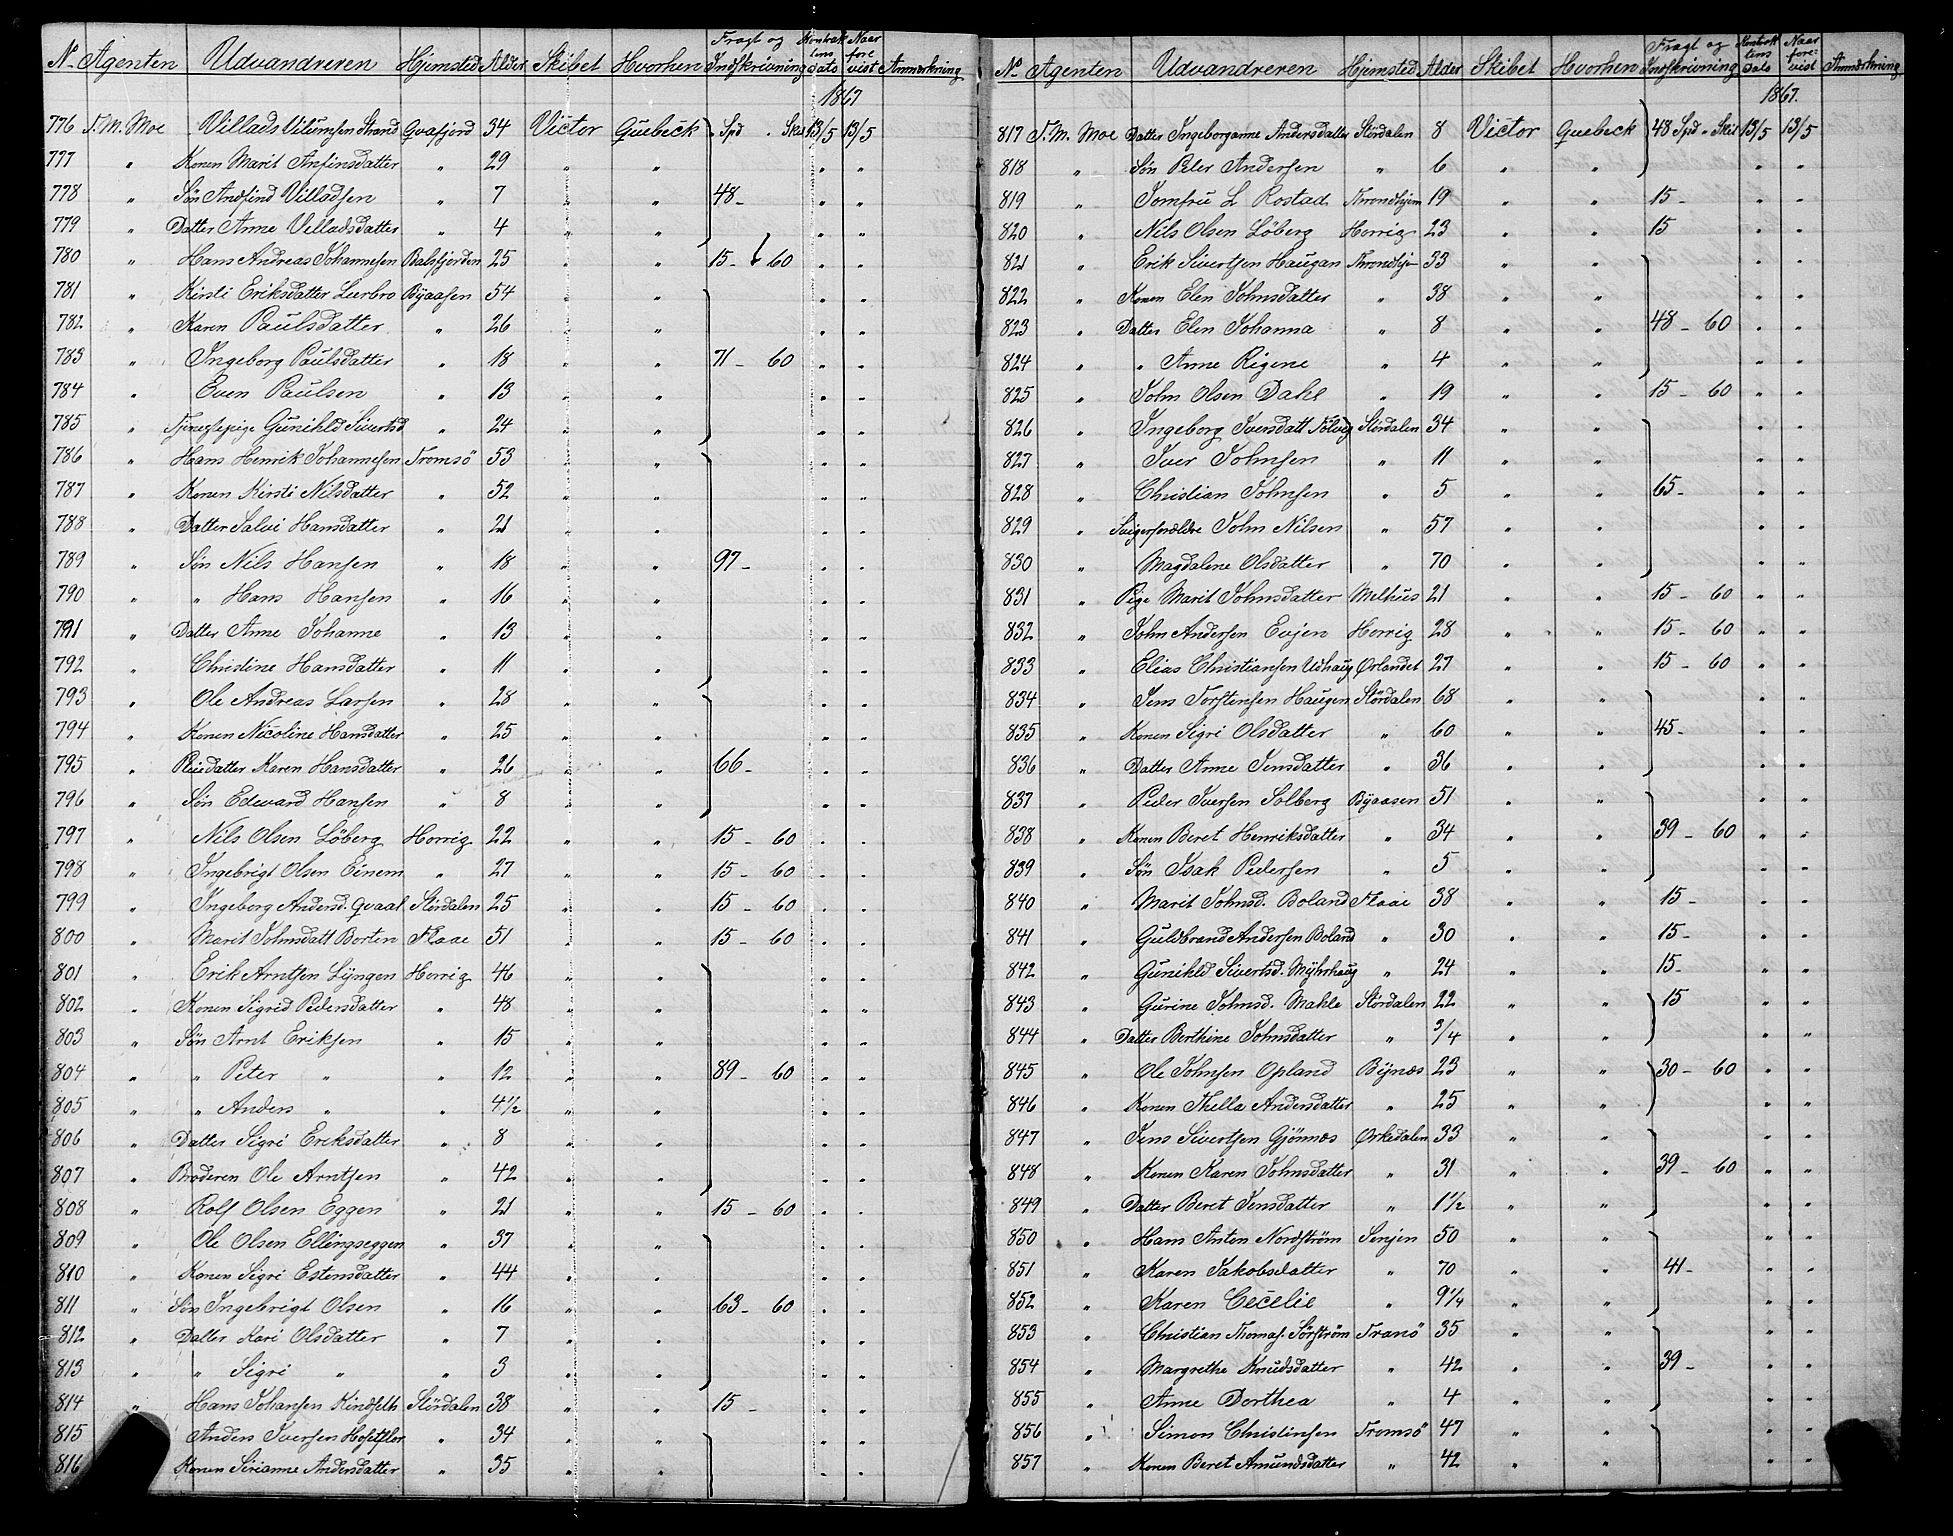 No Agenten Udvandreren Hjemsted Alder Skibet Hvorhen Fragt og Indskrivning Kontraktens Dato Naar forevist Anmærkning
1867
776 T. M. Moe Villads Vilumsen Strand Qvæfjord 34 Victor Quebeck Spd " Skil 13/5 13/5
777 " Konen Marit Anfinsdatter " 29 " " " "
778 " Søn Andfind Villadsen " 7 " " 48 - " "
779 " Datter Anne Villadsdatter " 4 " " " "
780 " Hans Andreas Johannesen Balsfjorden 25 " " 15 - 60 " "
781 " Kirsti Eriksdatter Leerbro Byaasen 54 " " " "
782 " Karen Paulsdatter " 26 " " " "
783 " Ingeborg Paulsdatter " 18 " " 71 - 60 " "
784 " Even Paulsen " 13 " " " "
785 " Tjenestepige Gunihld Sivertsd " 24 " " " "
786 " Hans Henrik Johannesen Tromsö 53 " " " "
787 " Konen Kirsti Nilsdatter " 52 " " " "
788 " Datter Salvi Hansdatter " 21 " " " "
789 " Søn Nils Hansen " 18 " " 97 - " "
790 " " Hans Hansen " 16 " " " "
791 " Datter Anne Johanne " 13 " " " "
792 " Christine Hansdatter " 11 " " " "
793 " Ole Andreas Larsen " 28 " " " "
794 " Konen Nicoline Hansdatter " 25 " " " "
795 " Pleiedatter Karen Hansdatter " 26 " " 66 - " "
796 " Søn Edevard Hansen " 8 " " " "
797 " Nils Olsen Löberg Horrig 22 " " 15 - 60 " "
798 " Ingebrigt Olsen Einem " 27 " " 15 - 60 " "
799 " Ingeborg Andersd. Qvaal Stördalen 25 " " 15 - 60 " "
800 " Marit Johnsdatt Borten Flaae 51 " " 15 - 60 " "
801 " Erik Arntsen Lyngen Horrig 46 " " " "
802 " Konen Sigrid Pedersdatter " 48 " " " "
803 " Søn Arnt Eriksen " 15 " " " "
804 " " Peter " " 12 " " 89 - 60 " "
805 " " Anders " " 4½ " " " "
806 " Datter Sigri Eriksdatter " 8 " " " "
807 " Broderen Ole Arntsen " 42 " " " "
808 " Rolf Olsen Eggen " 21 " " 15 - 60 " "
809 " Ole Olsen Ellingseggen " 37 " " " "
810 " Konen Sigri Estensdatter " 44 " " " "
811 " Søn Ingebrigt Olsen " 16 " " 63 - 60 " "
812 " Datter Kari Olsdatter " 7 " " " "
813 " " Sigri " " 3 " " " "
814 " Hans Johansen Kindseth Stördalen 38 " " 15 - " "
815 " Anders Iversen " 34 " " " "
816 " Konen Sirianne Andersdatter " 35 " " " "
No Agenten Udvandreren Hjemsted Alder Skibet Hvorhen Fragt og Indskrivning Kontraktens Dato Naar forevist Anmærkning
1867.
817 T. M. Moe Datter Ingeborganne Andersdatter Stördalen 8 Victor Quebeck 48 Spd " Skil 13/5 13/5
818 " Søn Peter Andersen " 6 " " " "
819 " Jomfru L Rostad Throndhjem 19 " " 15 - " "
820 " Nils Olsen Löberg Horrig 23 " " 15 " "
821 " Erik Sivertsen Haugan Throndhje 33 " " " "
822 " Konen Elen Johnsdatter " 38 " " " "
823 " Datter Elen Johanna " 8 " " 48 - 60 " "
824 " " Anne Rigene " 4 " " " "
825 " John Olsen Dahl " 19 " " 15 - 60 " "
826 " Ingeborg Iversdatt Stördalen 34 " " " "
827 " Iver Johnsen " 11 " " " "
828 " Christian Johnsen " 5 " " 65 - " "
829 " Svigerforældre John Nilsen " 57 " " " "
830 " Magdalene Olsdatter " 70 " " " "
831 " Pige Marit Johnsdatter Melhus 21 " " 15 - 60 " "
832 " John Andersen Evjen Horrig 28 " " 15 - 60 " "
833 " Elias Christiansen Udhaug Ørlandet 27 " " 15 - 60 " "
834 " Jens Torstensen Haugen Stördalen 68 " " " "
835 " Konen Sigri Olsdatter " 60 " " 45 - " "
836 " Datter Anne Jensdatter " 36 " " " "
837 " Peder Iversen Solberg Byaasen 51 " " " "
838 " Konen Beret Henriksdatter " 34 " " 39 - 60 " "
839 " Søn Isak Pedersen " 5 " " " "
840 " Marit Johnsd. Boland Flaae 38 " " 15 - " "
841 " Guldbrand Andersen Boland " 30 " " 15 - " "
842 " Gunihld Sivertsd. Myhrhaug " 24 " " 15 - " "
843 " Gurine Johnsd. Mahle Stördalen 22 " " 15 " "
844 " Datter Berthine Johnsdatter " 3/4 " " " "
845 " Ole Johnsen Opland Bynæs 23 " " 30 - 60 " "
846 " Konen Thella Andersdatter " 25 " " " "
847 " Jens Sivertsen Gjönnæs Orkedalen 33 " " " "
848 " Konen Karen Johnsdatter " 31 " " 39 - 60 " "
849 " Datter Beret Jensdatter " 1½ " " " "
850 " Hans Anton Nordström Senjen 50 " " " "
851 " Karen Jakobsdatter " 70 " " 41 - " "
852 " Karen Cecelie " 9¼ " " " "
853 " Christian Thomas. Sörström Tranö 35 " " " "
854 " Margrethe Knudsdatter " 42 " " 39 - " "
855 " Anne Dorthea " 4 " " " "
856 " Simon Christinsen Tromsö 47 " " " "
857 " Konen Beret Amundsdatter " 42 " " " "